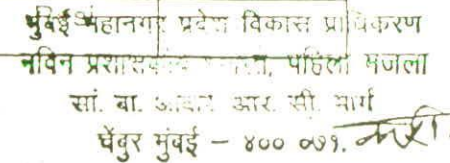 मुंबई महानगर प्रदेश विकास प्राधिकरण
नविन प्रशासकीय पहिला मजला
सां. बा. आवार आर. सी. मार्ग
चेंबुर मुंबई - ४०० ०७१.